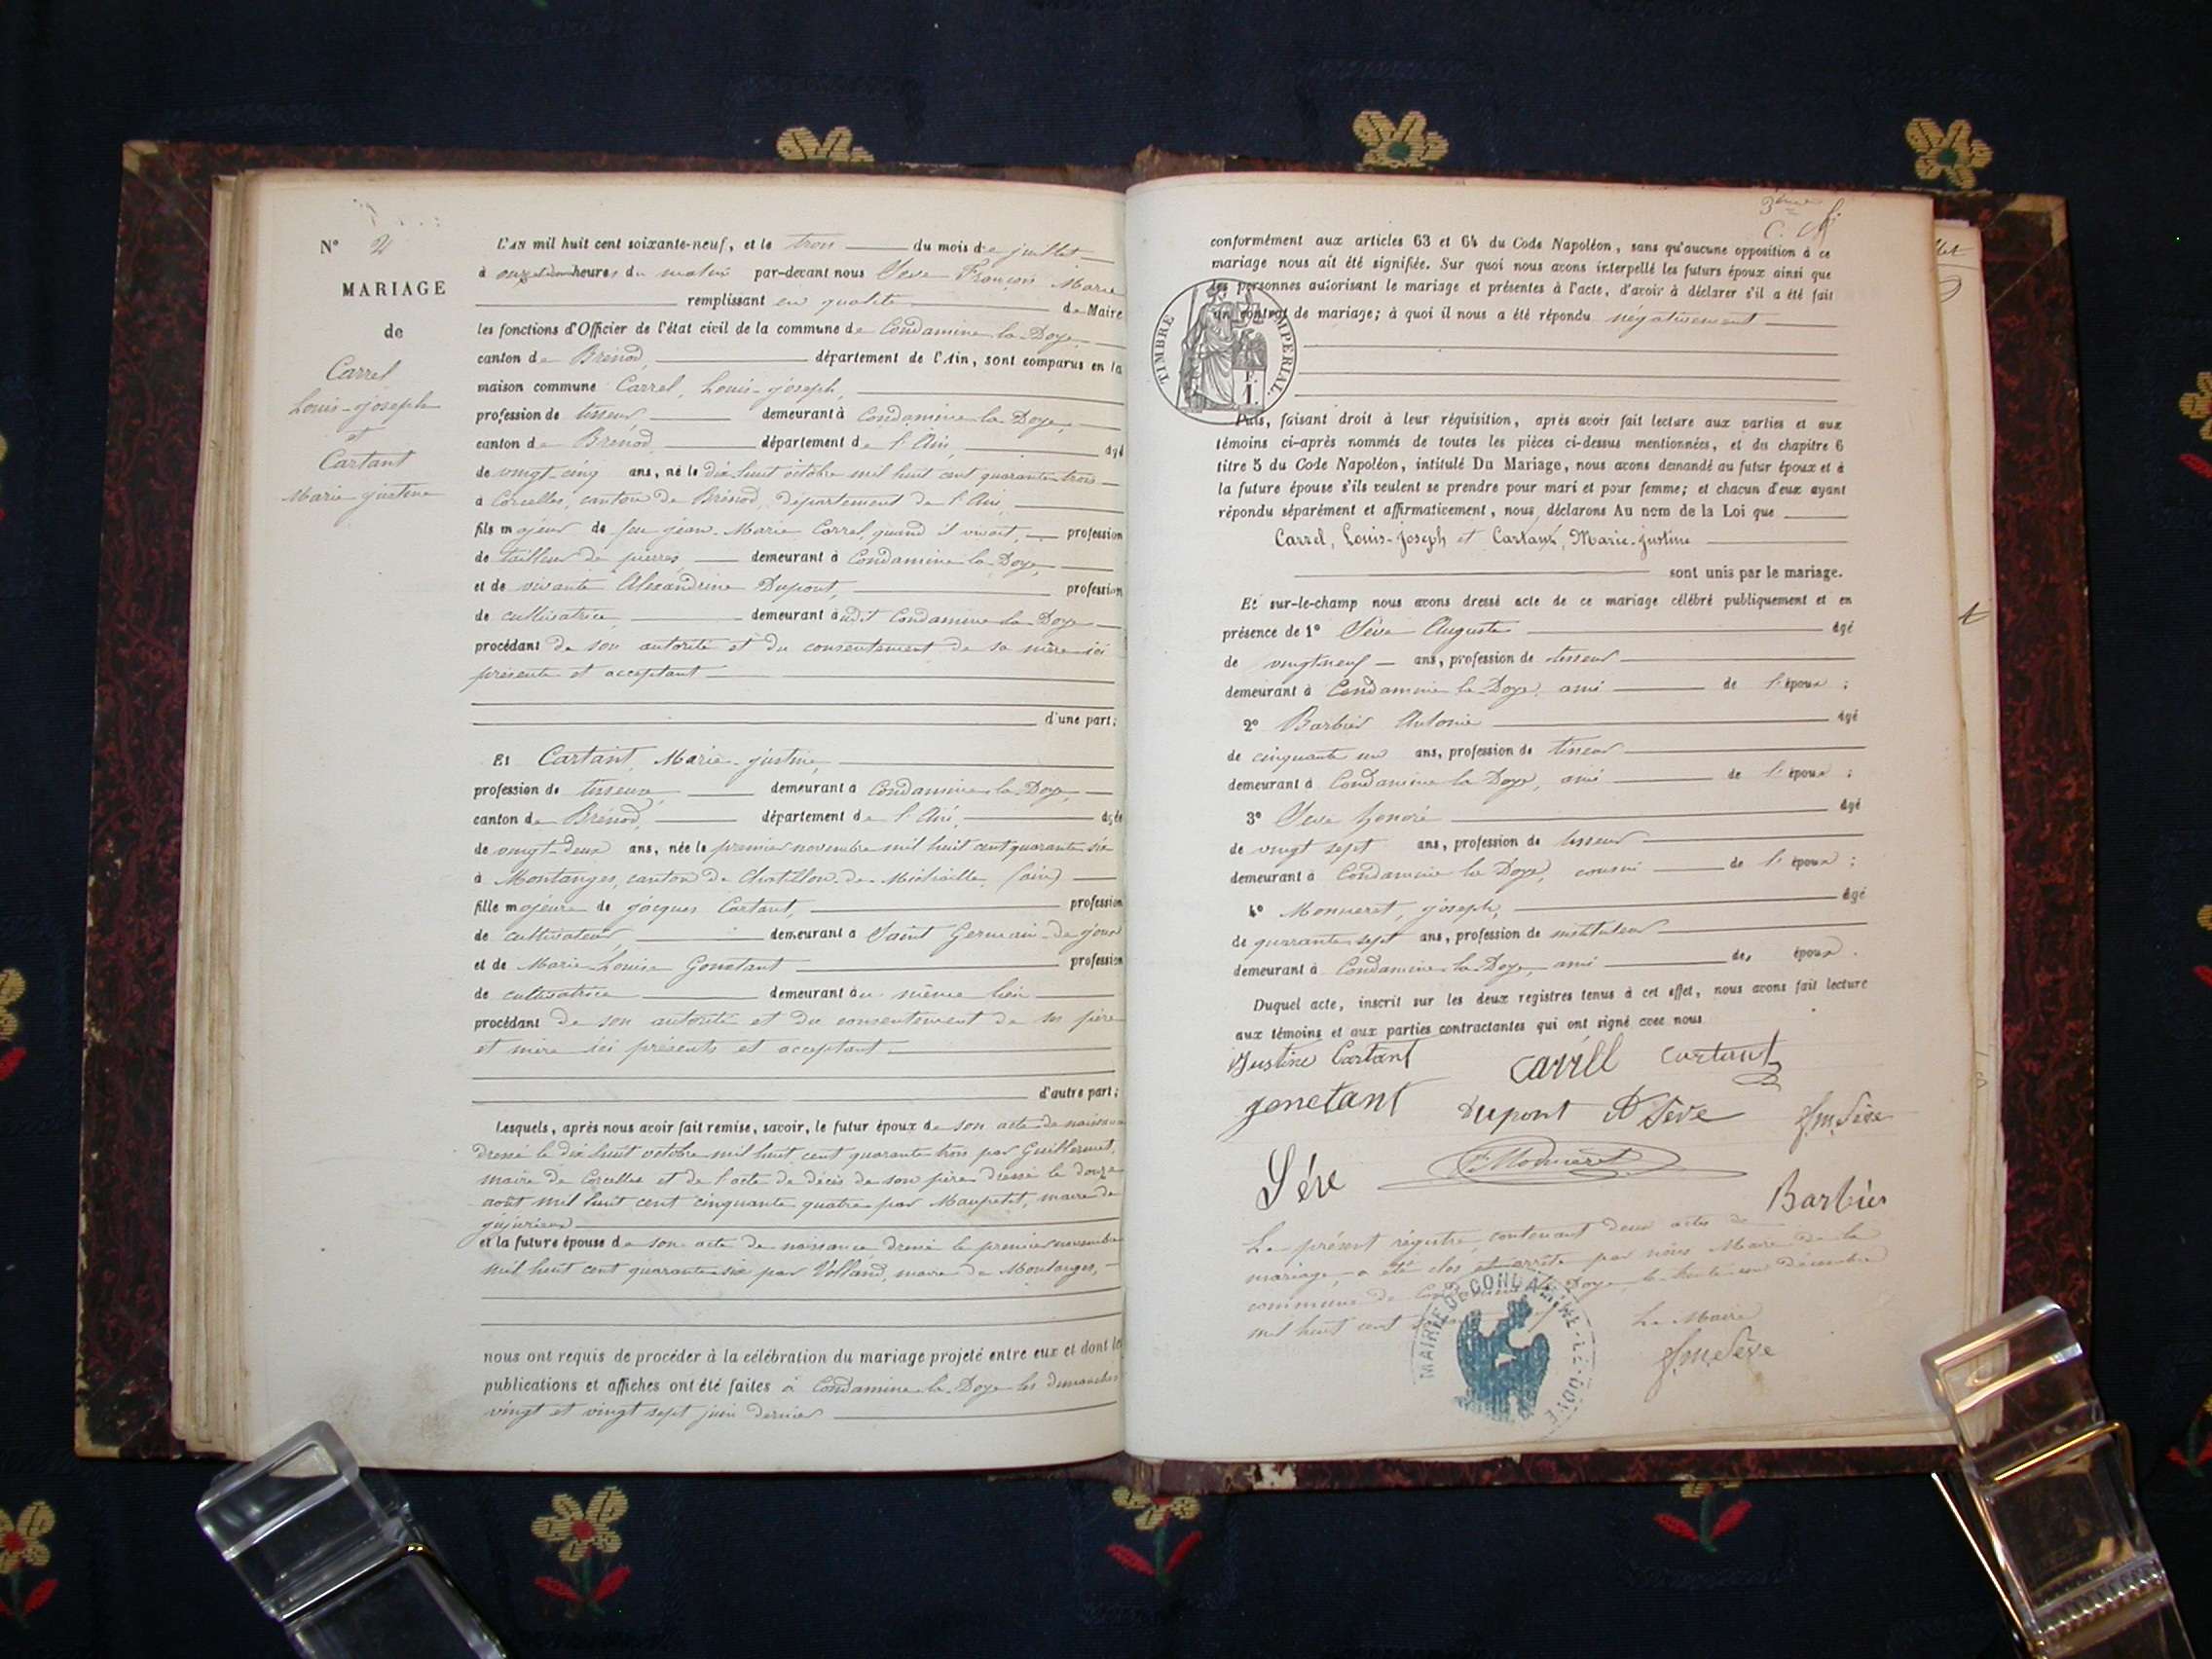 N° 2
MARIAGE
de
Carrel
Louis-joseph
et
Cartant
Marie-justine
L'AN mil huit cent soixante-neuf, et le trois du mois de juillet
à onze heures du matin par-devant nous Seve François Marie
remplissant en qualité de Maire
les fonctions d'Officier de l'état civil de la commune de Condamine la Doye
canton de Brénod, département de l'Ain, sont comparus en la
maison commune Carrel, Louis-joseph,
profession de tisseur demeurant à Condamine la Doye,
canton de Brénod département de l'Ain, âgé
de vingt-cinq ans, né le dix huit octobre mil huit cent quarante trois
à Corcelles, canton de Brénod, département de l'Ain,
fils majeur de feu jean-Marie Carrel, quand il vivait, profession
de tailleur de pierres, demeurant à Condamine la Doye,
et de vivante Alexandrine Dupont, profession
de cultivatrice, demeurant àudit Condamine la Doye
procédant de son autorité et du consentement de sa mère ici
présente et acceptant
d'une part;
Et Cartant, Marie-justine,
profession de tisseuse, demeurant à Condamine la Doye,
canton de Brénod, département de l'Ain, âgée
de vingt-deux ans, née le premier novembre mil huit cent quarante six
à Montanges, canton de Chatillon-de-Michaille, (ain)
fille majeure de jacques Cartant, profession
de cultivateur, demeurant à Saint Germain-de-joux
et de Marie Louise Gonetant profession
de cultivatrice demeurant au même lieu
procédant de son autorité et du consentement de ses père
et mère ici présents et acceptant
d'autre part;
Lesquels, après nous avoir fait remise, savoir, le futur époux de son acte de naissance
dressé le dix huit octobre mil huit cent quarante trois par Guillermet,
maire de Corcelles et de l'acte de décès de son père dressé le douze
août mil huit cent cinquante quatre par Maupetit, maire de
jujurieux
et la future épouse de son acte de naissance dressé le premier novembre
mil huit cent quarante six par Volland, maire de Montanges,
nous ont requis de procéder à la célébration du mariage projeté entre eux et dont les
publications et affiches ont été faites à Condamine la Doye les dimanches
vingt et vingt sept juin dernier
3ème
conformément aux articles 63 et 64 du Code Napoléon, sans qu'aucune opposition à ce
mariage nous ait été signifiée. Sur quoi nous avons interpellé les futurs époux ainsi que
les personnes autorisant le mariage et présentes à l'acte, d'avoir à déclarer s'il a été fait
un contrat de mariage; à quoi il nous a été répondu négativement
TIMBRE IMPERIAL
F.
1.
Puis, faisant droit à leur réquisition, après avoir fait lecture aux parties et aux
témoins ci-après nommés de toutes les pièces ci-dessus mentionnées, et du chapitre 6
titre 5 du Code Napoléon, intitulé Du Mariage, nous avons demandé au futur époux et à
la future épouse s'ils veulent se prendre pour mari et pour femme; et chacun d'eux ayant
répondu séparément et affirmativement, nous déclarons Au nom de la Loi que
Carrel, Louis-joseph et Cartant, Marie-justine
sont unis par le mariage.
Et sur-le-champ nous avons dressé acte de ce mariage célébré publiquement et en
présence de 1° Sève Auguste âgé
de vingt neuf ans, profession de tisseur
demeurant à Condamine la Doye, ami de l'époux;
2° Barbier Antonie âgé
de cinquante un ans, profession de tisseur
demeurant à Condamine la Doye, ami de l'époux;
3° Seve honoré âgé
de vingt sept ans, profession de tisseur
demeurant à Condamine la Doye, cousin de l'époux;
4° Monneret, joseph, âgé
de quarante sept ans, profession de instituteur
demeurant à Condamine la Doye, ami des époux.
Duquel acte, inscrit sur les deux registres tenus à cet effet, nous avons fait lecture
aux témoins et aux parties contractantes qui ont signé avec nous
Justine Cartant Carrel Cartant
gonetant Dupont A Seve f.m. Sève
Séve Monneret Barbier
Le présent registre, contenant deux actes de
mariage, a été clos et arrêté par nous Maire de la
commune de Condamine la Doye le trente un décembre
mil huit cent
Le Maire
f.m. Sève
MAIRIE DE CONDAMINE-LA-DOYE